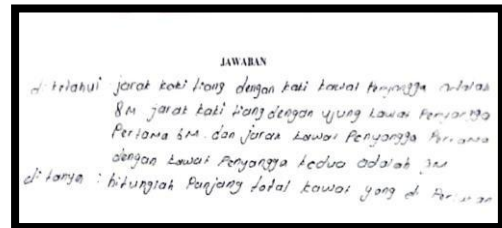 JAWABAN
diketahui : jarak kaki tiang dengan kaki kawat penyangga adalah
8M jarak kaki tiang dengan ujung kawat Penyangga
Pertama 6M. dan jarak kawat Penyangga Pertama
dengan kawat Penyangga kedua adalah 3M
ditanya : hitunglah Panjang total kawat yang di